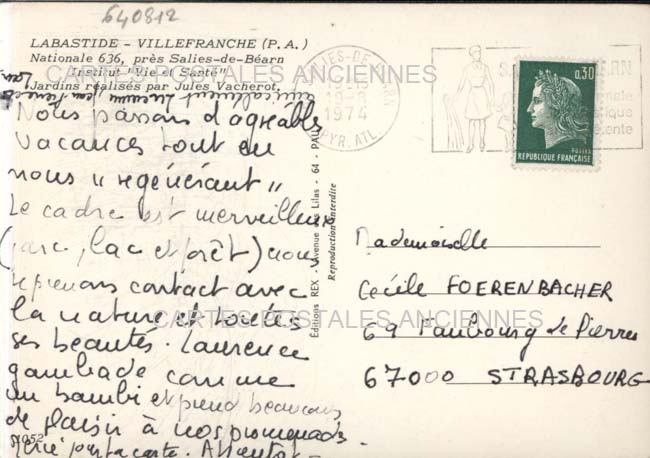 640812
LABASTIDE - VILLEFRANCHE (P. A.)
Nationale 636, près Salies-de-Béarn
Institut "Vie et Santé"
Jardins réalisés par Jules Vacherot,
CARTES POSTALES ANCIENNES
amicalement Suzanne Jean Pierre
Nous passons d'agréables
vacances tout en
nous "régénérant"
Le cadre est merveilleux
(parc, lac et forêt) nous
reprenons contact avec
la nature et toutes
ses beautés. Laurence
gambade comme
un bambi et prend beaucoup
de plaisir à nos promenades
Merci pour ta carte. A bientôt -
1052
Editions REX - Avenue des Lilas - 64 - PAU
Reproduction interdite
SALIES-DE-BÉARN
1974
PYR. ATL.
0,30
POSTES
REPUBLIQUE FRANÇAISE
Mademoiselle
Cécile FOERENBACHER
69 Faubourg de Pierres
67000 STRASBOURG
CARTES POSTALES ANCIENNES